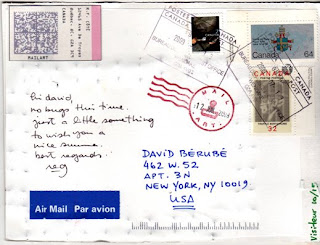 MAILART
POSTES
CANADA
2009
CANADA
Canada 64
CANADA
POST
32
MAIL
ART
hi david,
no bugs this time.
just a little something
to wish you a
nice summer.
best regards
reg
DAVID BÉRUBÉ
462 W. 52
APT. 3N
NEW YORK, NY 10019
USA
Air Mail Par avion
Visiteur 10/15